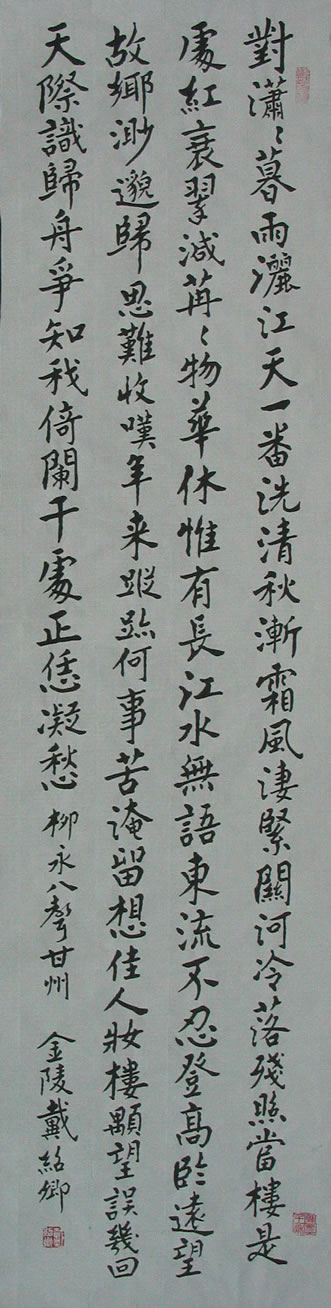 對瀟〻暮雨灑江天一番洗清秋漸霜風淒緊關河冷落殘照當樓是
處紅衰翠減苒〻物華休惟有長江水無語東流不忍登高臨遠望
故鄉渺邈歸思難收嘆年来蹤跡何事苦淹留想佳人妝樓顒望誤幾回
天際識歸舟爭知我倚闌干處正恁凝愁 柳永八聲甘州 金陵戴紹卿